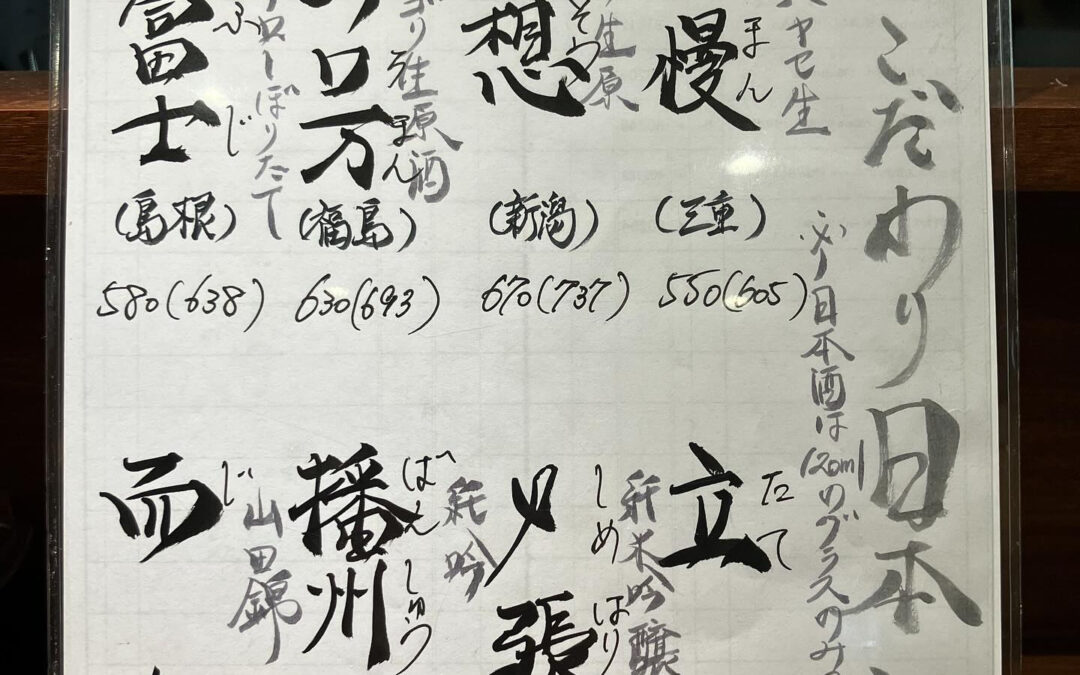 こだわり日本
※日本酒は120mlのグラスのみ
慢
まん
ヤセ生
(三重)
550(605)
想
そう
生原
(新潟)
670(737)
ロ万
まん
ゴリ生原酒
(福島)
630(693)
富士
ふじ
ローしぼりたて
(島根)
580(638)
立
たて
〆張
しめはり
純米吟醸
播州
ばんしゅう
純吟
而
じ
山田錦